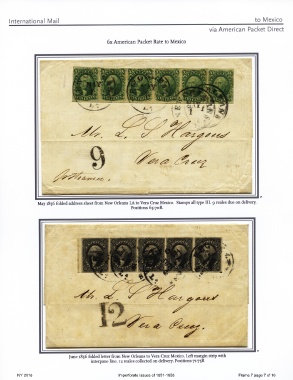 International Mail
to Mexico
via American Packet Direct
6x American Packet Rate to Mexico
Mr. L S Hargous
Vera Cruz
9
May 1856 folded address sheet from New Orleans LA to Vera Cruz Mexico. Stamps all type III. 9 reales due on delivery.
Mr. L S Hargous
12
Vera Cruz
June 1856 folded letter from New Orleans to Vera Cruz Mexico. Left margin strip with
interpane line. 12 reales collected on delivery.
Imperforate Issues of 1851-1856
Frame 7 page 7 of 16